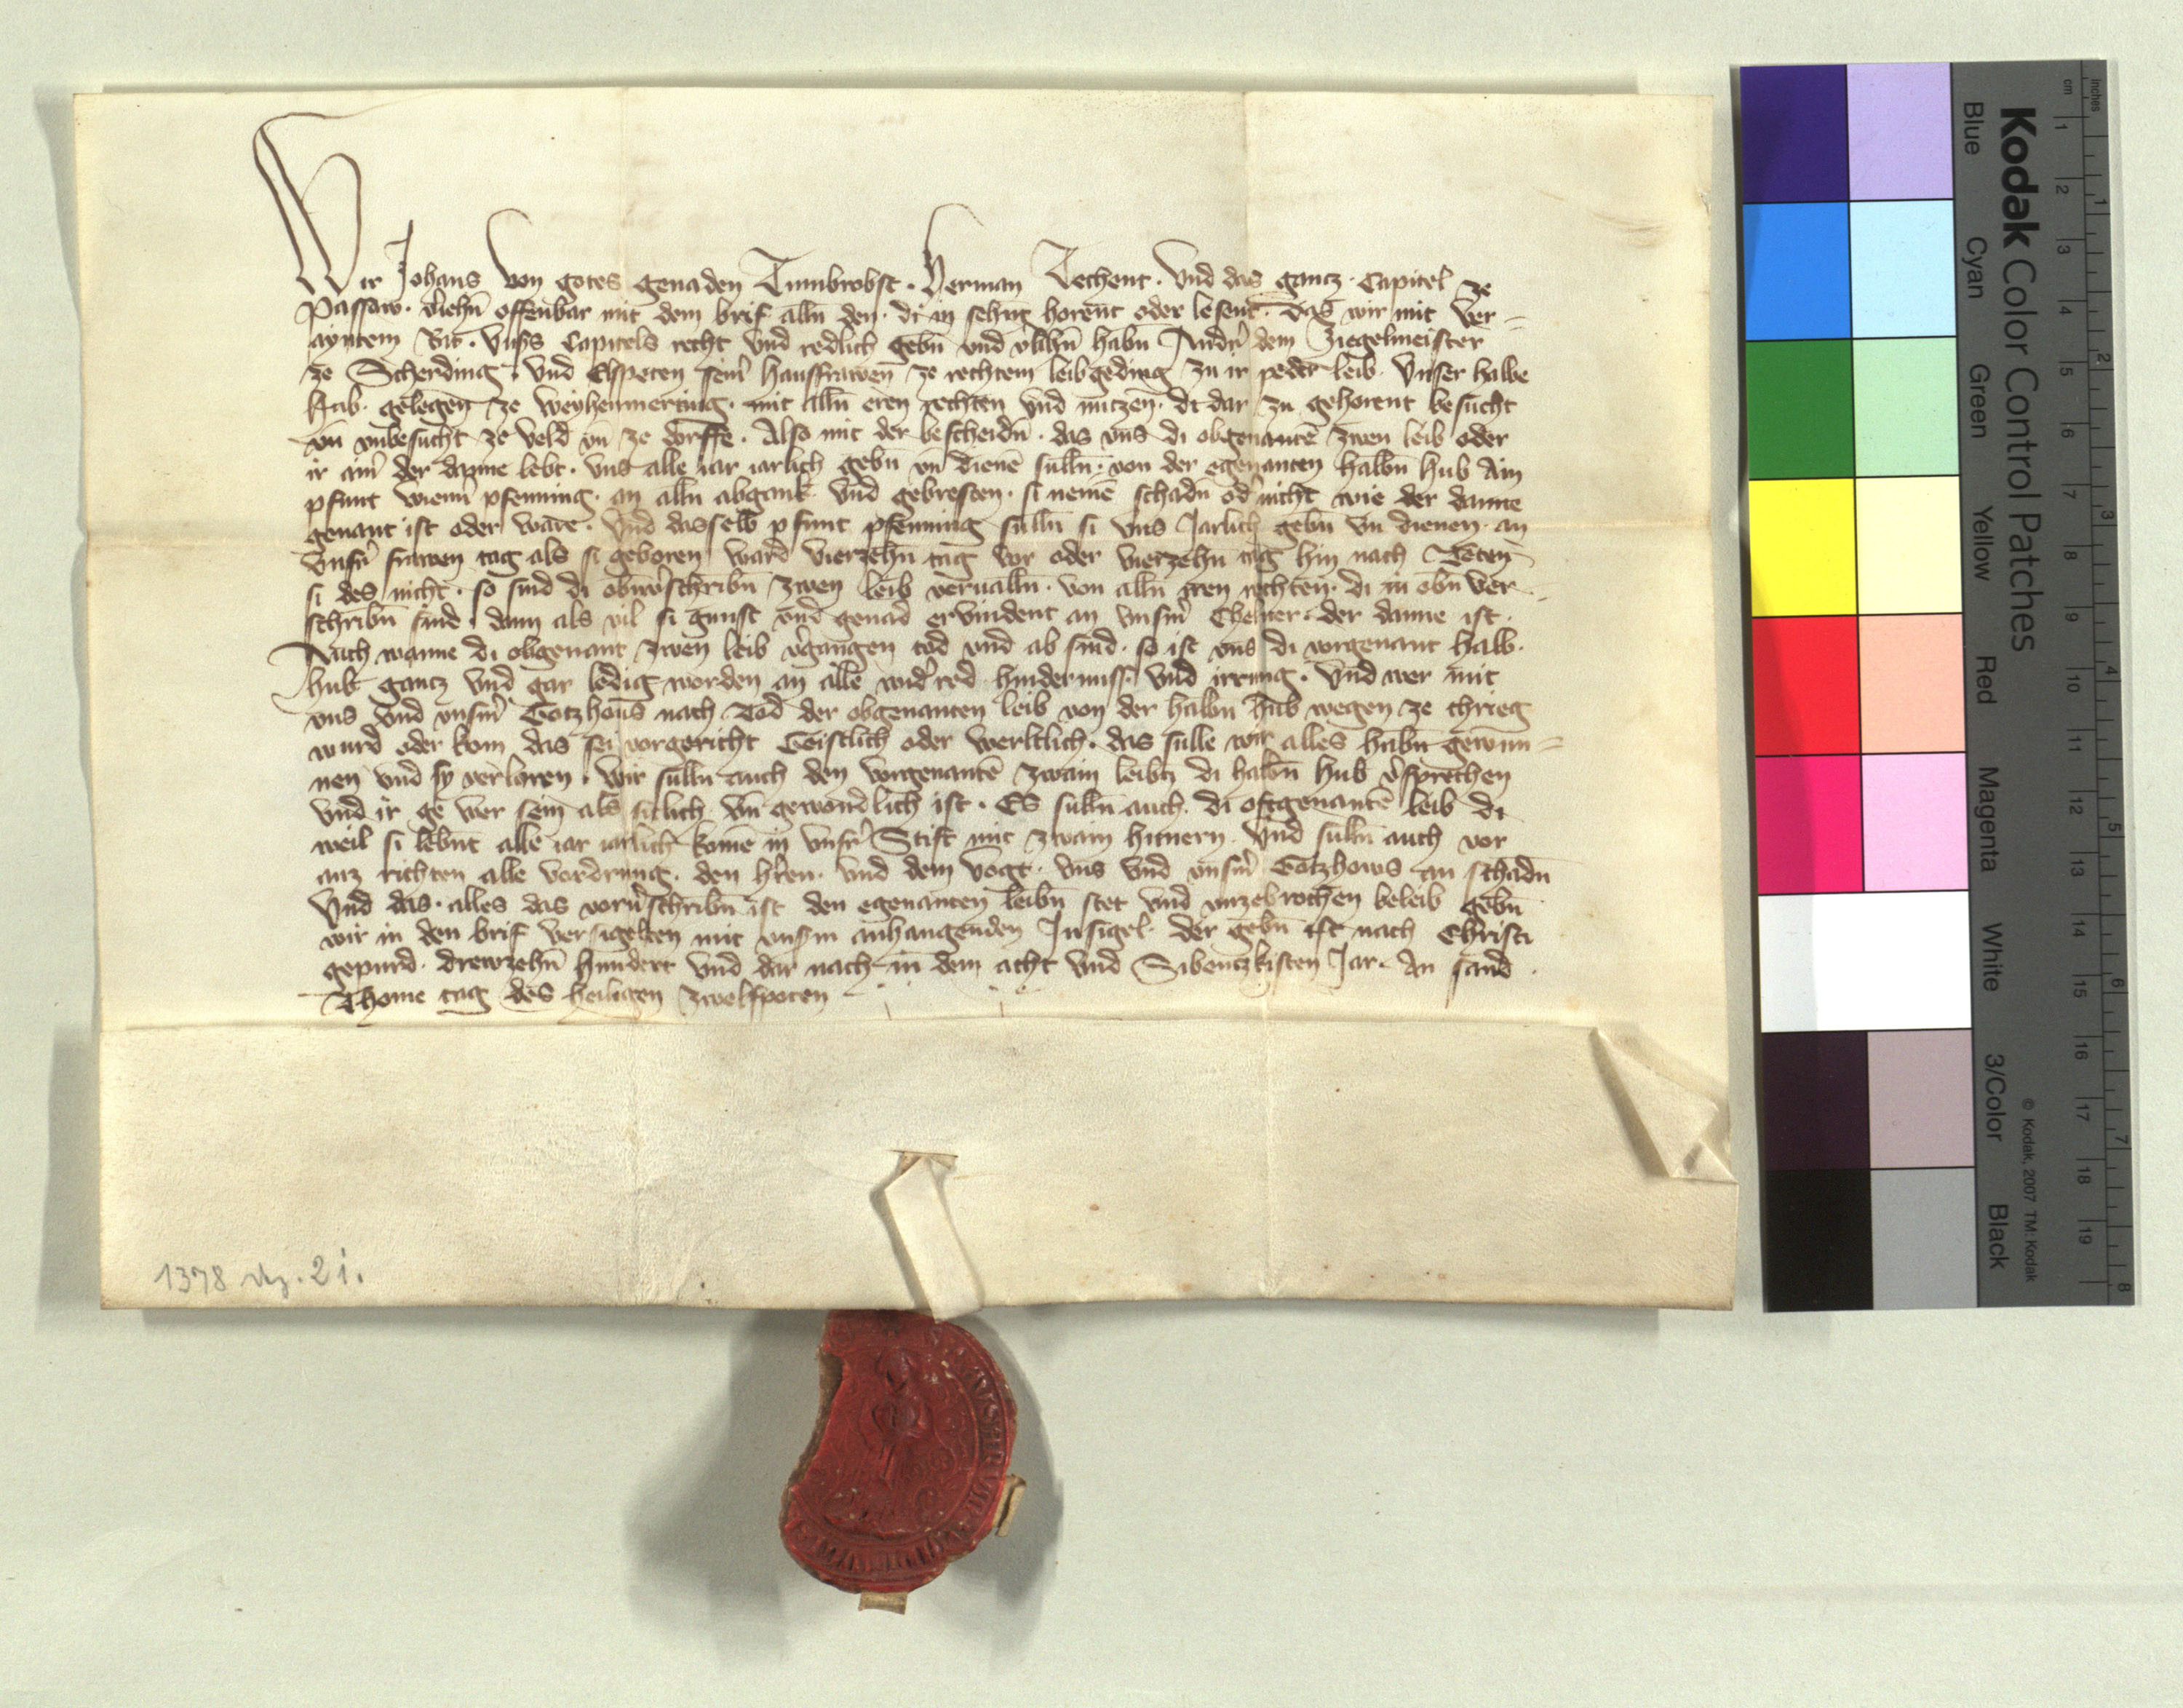 Wir Johans von gotes genaden Tumbrobst. Herman Techent. Vnd das gancz. Capitel ze
Passaw. v̓iehn̄ offenbar mit dem brif alln̄ den. di in sehn̄t horent oder lesent. das wir mit ver=
ayntem Rat. Vnss Capitels recht vnd redlich gebn̄ vnd v̓lihn̄ habn̄ Andr̄n dem Ziegelmeister
ze Scherding. vnd Elspeten sein̓ hausfrawen ze rechtem leibgeding zu ir peder leib. Vnser halbe
hub. gelegen ze weyhenmerting. mit alln̄ eren rechten vnd nutzen. di dar zu gehorent besucht
vn̄ vnbesucht ze veld vn̄ ze dorffe. Also mit der bescheidn̄. das vns di obgenantē zwen leib oder
ir ain̓ der danne lebt. vns alle iar iarlich gebn̄ vn̄ dienē sulln̄. von der egenanten halbn̄ hub Ain
pfunt wienn̓ pfenning. an alln̄ abgank vnd gebresten. si nemē schadn̄ od̓ nicht wie der danne
genant ist oder ware. Vnd dasselb pfunt pfenning sulln̄ si vns Jarlich gebn̄ vn̄ dienen. an
Vnsr̓ frawen tag als si geboren ward vierzehn̄ tag vor oder vierzehn̄ tag hin nach Teten
si des nicht. so sind di obnv̓schribn̄ zwen leib veruallen. von alln̄ iren rechten. di in obn̄ ver=
schribn̄ sind. dann als vil si gunst vnd genad ervindent an vnsm̓ Chelner. der danne ist.
Auch wanne di obgenant zwen leib v̓gangen tod vnd ab sind. so ist vns di vorgenant halb.
hub gancz vnd gar ledig worden an alle wid̓red hindernuss. vnd irrung. Vnd wer mit
vns vnd vnsm̓ Gotzhous nach Tod der obgenanten leib von der halbn̄ hub wegen ze chrieg
wurd oder kom das sei vorgericht Geistlich oder werltlich. das sulle wir alles habn̄ gewun=
nen vnd sy verloren. Wir sulln̄ auch den vorgenantē zwain leibn̄ di halbn̄ hub v̓sprechen
vnd ir ge wer sein als sitlich vn̄ gewondlich ist. Es sulln̄ auch. di oftgenantē leib di
weil si lebnt alle iar iarlich komē in vnsr̓ Stift mit zwain hunern. Vnd sulln̄ auch vor
auz richten alle vordrung. den hr̓en. vnd dem vogt. vns vnd vnsm̓ Gotzhows an schadn̄
Vnd das. alles das vorv̓schribn̄ ist den egenanten leibn̄ stet vnd vnzebrochen beleib gebn̄
wir in den brif versigelten mit vnsm̓ anhangenden Insigel. der gebn̄ ist nach Christi
gepurd. drewzehn̄ hundert vnd dar nach in dem acht vnd Sibentzkisten Jar. An sand.
Thome tag des heiligen zwelfpoten
1378 Dz. 21.
Kodak Color Control Patches
Blue Cyan Green Yellow Red Magenta White 3/Color Black
© Kodak, 2007 TM: Kodak
inches 1 2 3 4 5 6 7 8
cm 1 2 3 4 5 6 7 8 9 10 11 12 13 14 15 16 17 18 19